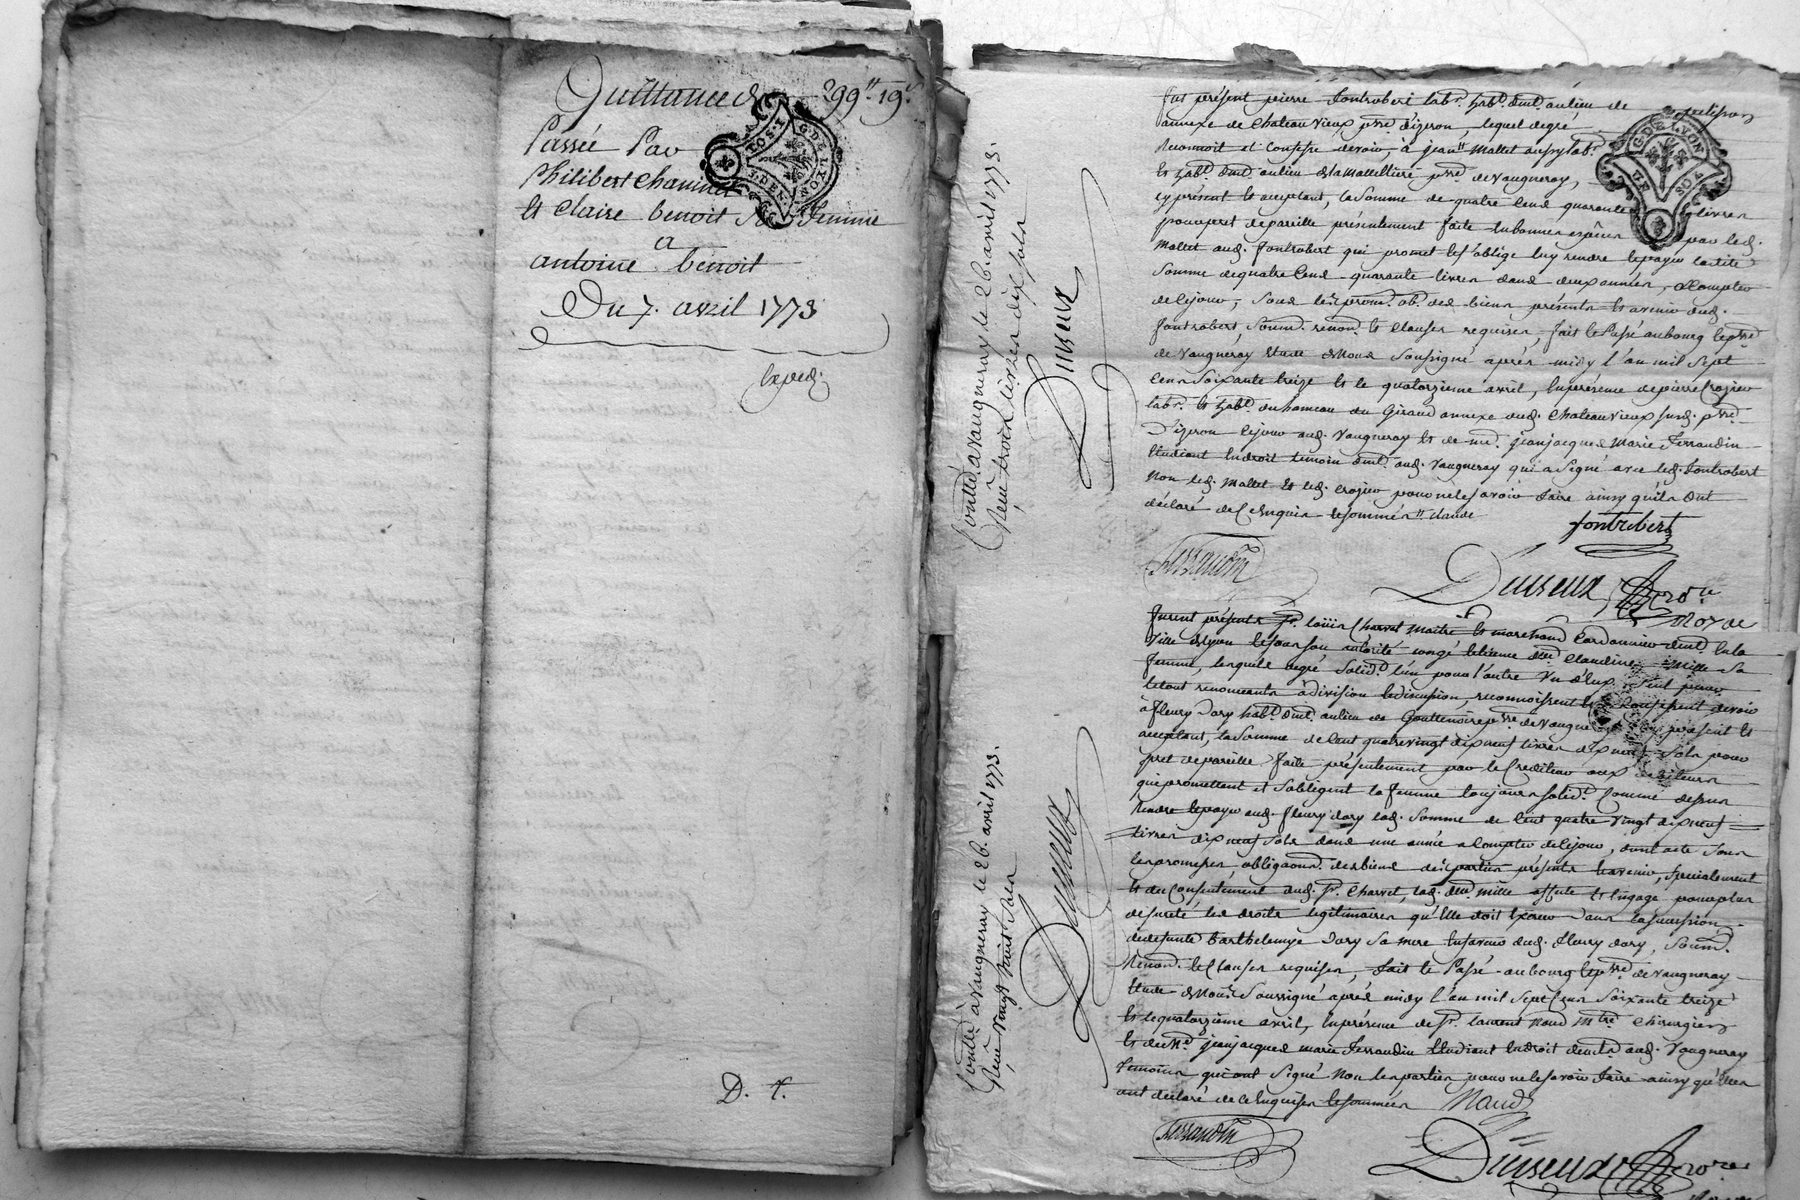 Quittance de 299ᵗᵗ 19ˢ
Passée Par
Philibert Chaminet
Et Claire benoit Sa Femme
a
antoine benoit
Du 7. avril 1773
Exped.
D. f.
G. DE LYON
Controllé a Vaugneray le 26. avril 1773.
Reçu trois livres dix sols
Duseux
fut présent pierre fontrobert labr. habt. dmt. au lieu de
annexe de Chateau Vieux psse d'izeron, lequel de gré
Reconnoit et Confesse devoir, à jean Mallet aussy labr.
Et habt. dmt. au lieu de la Mallettiere psse de Vaugneray,
cy présent Et acceptant, la Somme de quatre Cent quarante livres
pour pret de pareille présentement faite En bonnes espèces par led.
Mallet aud. fontrobert qui promet Et s'oblige luy rendre Et payer la dite
Somme de quatre Cent quarante livres dans deux années, a Compter
de Cejour, Sous les prom. ob. des biens présents Et avenir dud.
fontrobert, Soumis. renon. Et Clauses requises, fait Et Passé au bourg Et psse
de Vaugneray Etude de Nous Soussigné après midy l'an mil Sept
Cent Soixante treize Et le quatorzieme avril, En présence de pierre Crozier
labr. Et habt. du hameau du Giraud annexe dud. Chateau vieux susd. psse
D'izeron Cejour aud. Vaugneray Et de me. jean jacques Marie Ferrandin
Etudiant En droit temoin dmt. aud. Vaugneray qui a Signé avec led. fontrobert
Non led. Mallet Et led. Crozier pour ne le Savoir faire ainsy qu'ils ont
déclaré de Ce Enquis Et Sommés
fontrobert
Ferrandin
Duseux
Controllé à Vaugneray le 26. avril 1773.
Reçu vingt huit sols
Duseux
furent présents Sr. loüis Charvet Maitre Et marchand Cordonnier dmt. En la
Ville de Lyon Et de son autorité congé Et licence Dlle Claudine Mille Sa
femme, lesquels de gré Solidt. l'un pour l'autre Un d'Eux Seul pour
le tout renonceants à division Et discussion, reconnoissent Et Confessent devoir
a fleury Dory habt. dmt. au lieu de Gouttenoire psse de Vaugneray présent Et
acceptant, la Somme de Cent quatre vingt dix neuf livres dix neuf Sols pour
pret de pareille faite présentement par le Crediteur aux debiteurs
qui promettent et S'oblegent la femme toujours Solidt. Comme dessus
Rendre Et payer aud. fleury dory lad. Somme de Cent quatre vingt dix neuf
livres dix neuf Sols dans une année a Compter de Cejour, dont acte Sous
les promesses, obligaons. des biens des parties présents Et avenir, Specialement
Et du Consentement dud. Sr. Charvet, lad. Dlle Mille affecte Et Engage pour plus
de sureté les droits legitimaires qu'Elle doit Exercer dans la succession
de defunte barthelemye Dory Sa mere En faveur dud. fleury dory, Soumis.
Renon. Et Clauses requises, fait Et Passé au bourg Et psse de Vaugneray
Etude de Nous Soussigné après midy l'an mil Sept Cent Soixante treize
Et le quatorzieme avril, En présence de Sr. laurent Naud Mtre Chirurgien
Et de Me. jean jacques marie Ferrandin Etudiant En droit demts. aud. Vaugneray
Temoins qui ont Signé Non les parties pour ne le Savoir faire ainsy qu'elles
ont déclaré de Ce Enquises Et Sommées
Naud
Ferrandin
Duseux